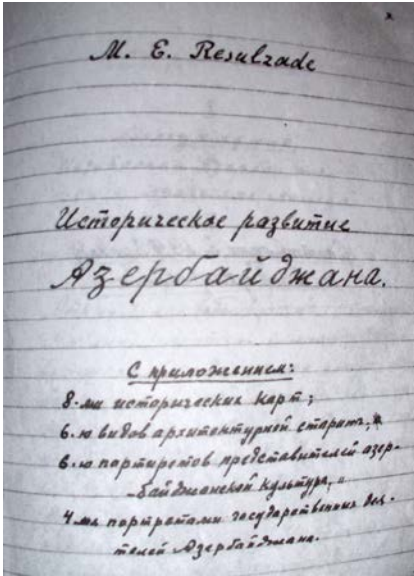 M. E. Resulzade
Историческое развитие
Азербайджана.
С приложением:
8-ми исторических карт;
6-ю видов архитектурной старины,
6-ю портретов представителей азер-
-байджанской культуры,
4-мя портретами государственных дея-
телей Азербайджана.